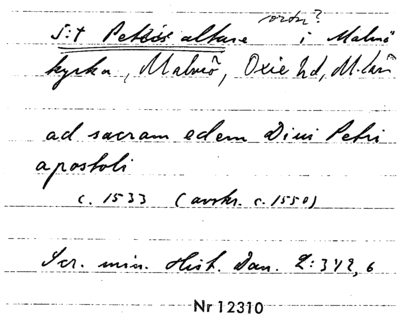 ordn?
S:t Petri altare i Malmö
kyrka, Malmö, Oxie hd, M-län
ad sacram edem Diui Petri
apostoli
c. 1533 (avskr. c. 1550)
Scr. min. Hist. Dan. 2:342, 6
Nr 12310